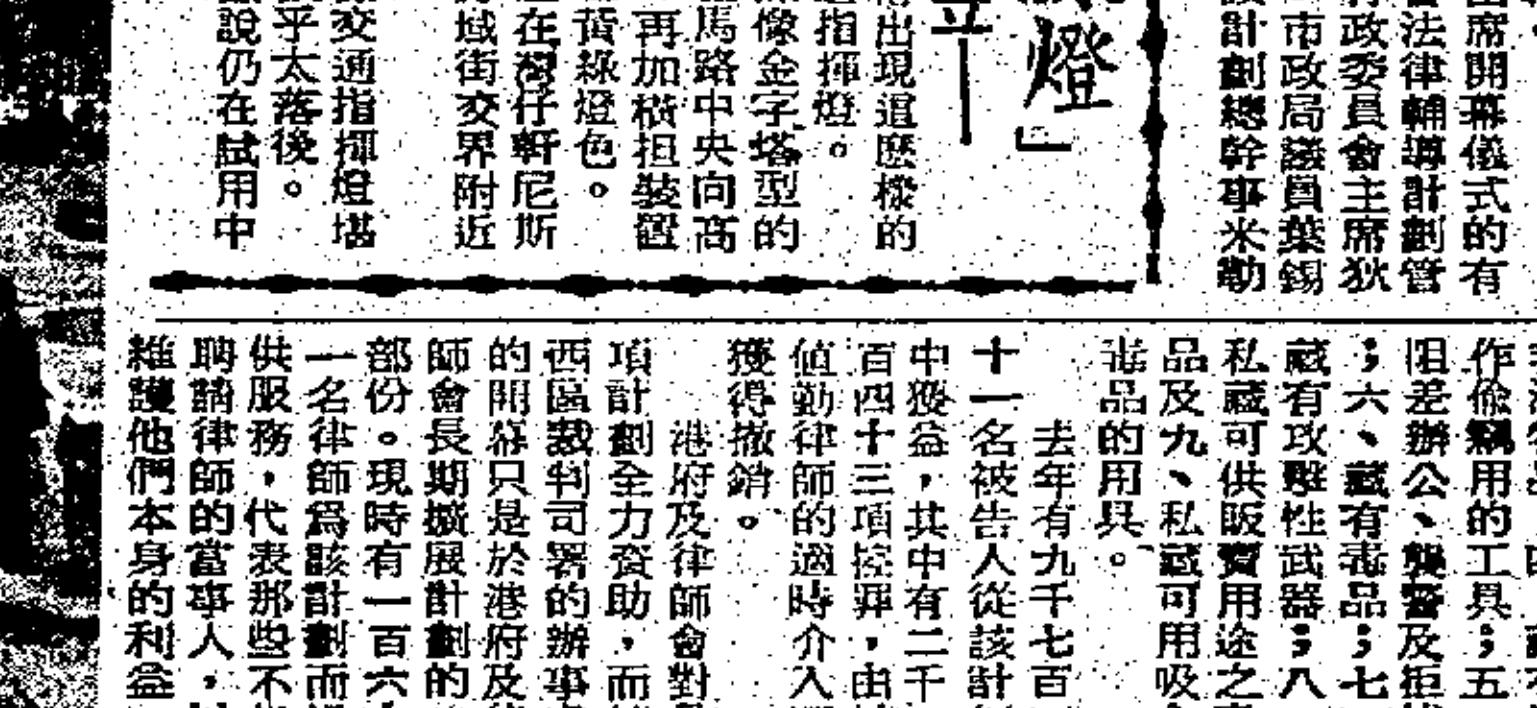 出席開幕儀式的有
法律輔導計劃管
政委員會主席狄
市政局議員葉錫
計劃總幹事米勒
燈」
立—
出現這麼樣的
指揮燈。
像金字塔型的
馬路中央向高
再加橫担裝置
黃綠燈色。
在灣仔軒尼斯
域街交界附近
交通指揮燈堪
乎太落後。
說仍在試用中
作偷竊用的工具;五
阻差辦公、襲警及拒
;六、藏有毒品;七
藏有攻擊性武器;八
私藏可供販賣用途之
品及九、私藏可用吸
毒品的用具。
去年有九千七百
十一名被告人從該計
中獲益,其中有二千
百四十三項控罪,由
值勤律師的適時介入
獲得撤銷。
港府及律師會對
項計劃全力資助,而
西區裁判司署的辦事
的開幕只是於港府及
師會長期擴展計劃的
部份。現時有一百六
一名律師為該計劃而
供服務,代表那些不
聘請律師的當事人,
維護他們本身的利益